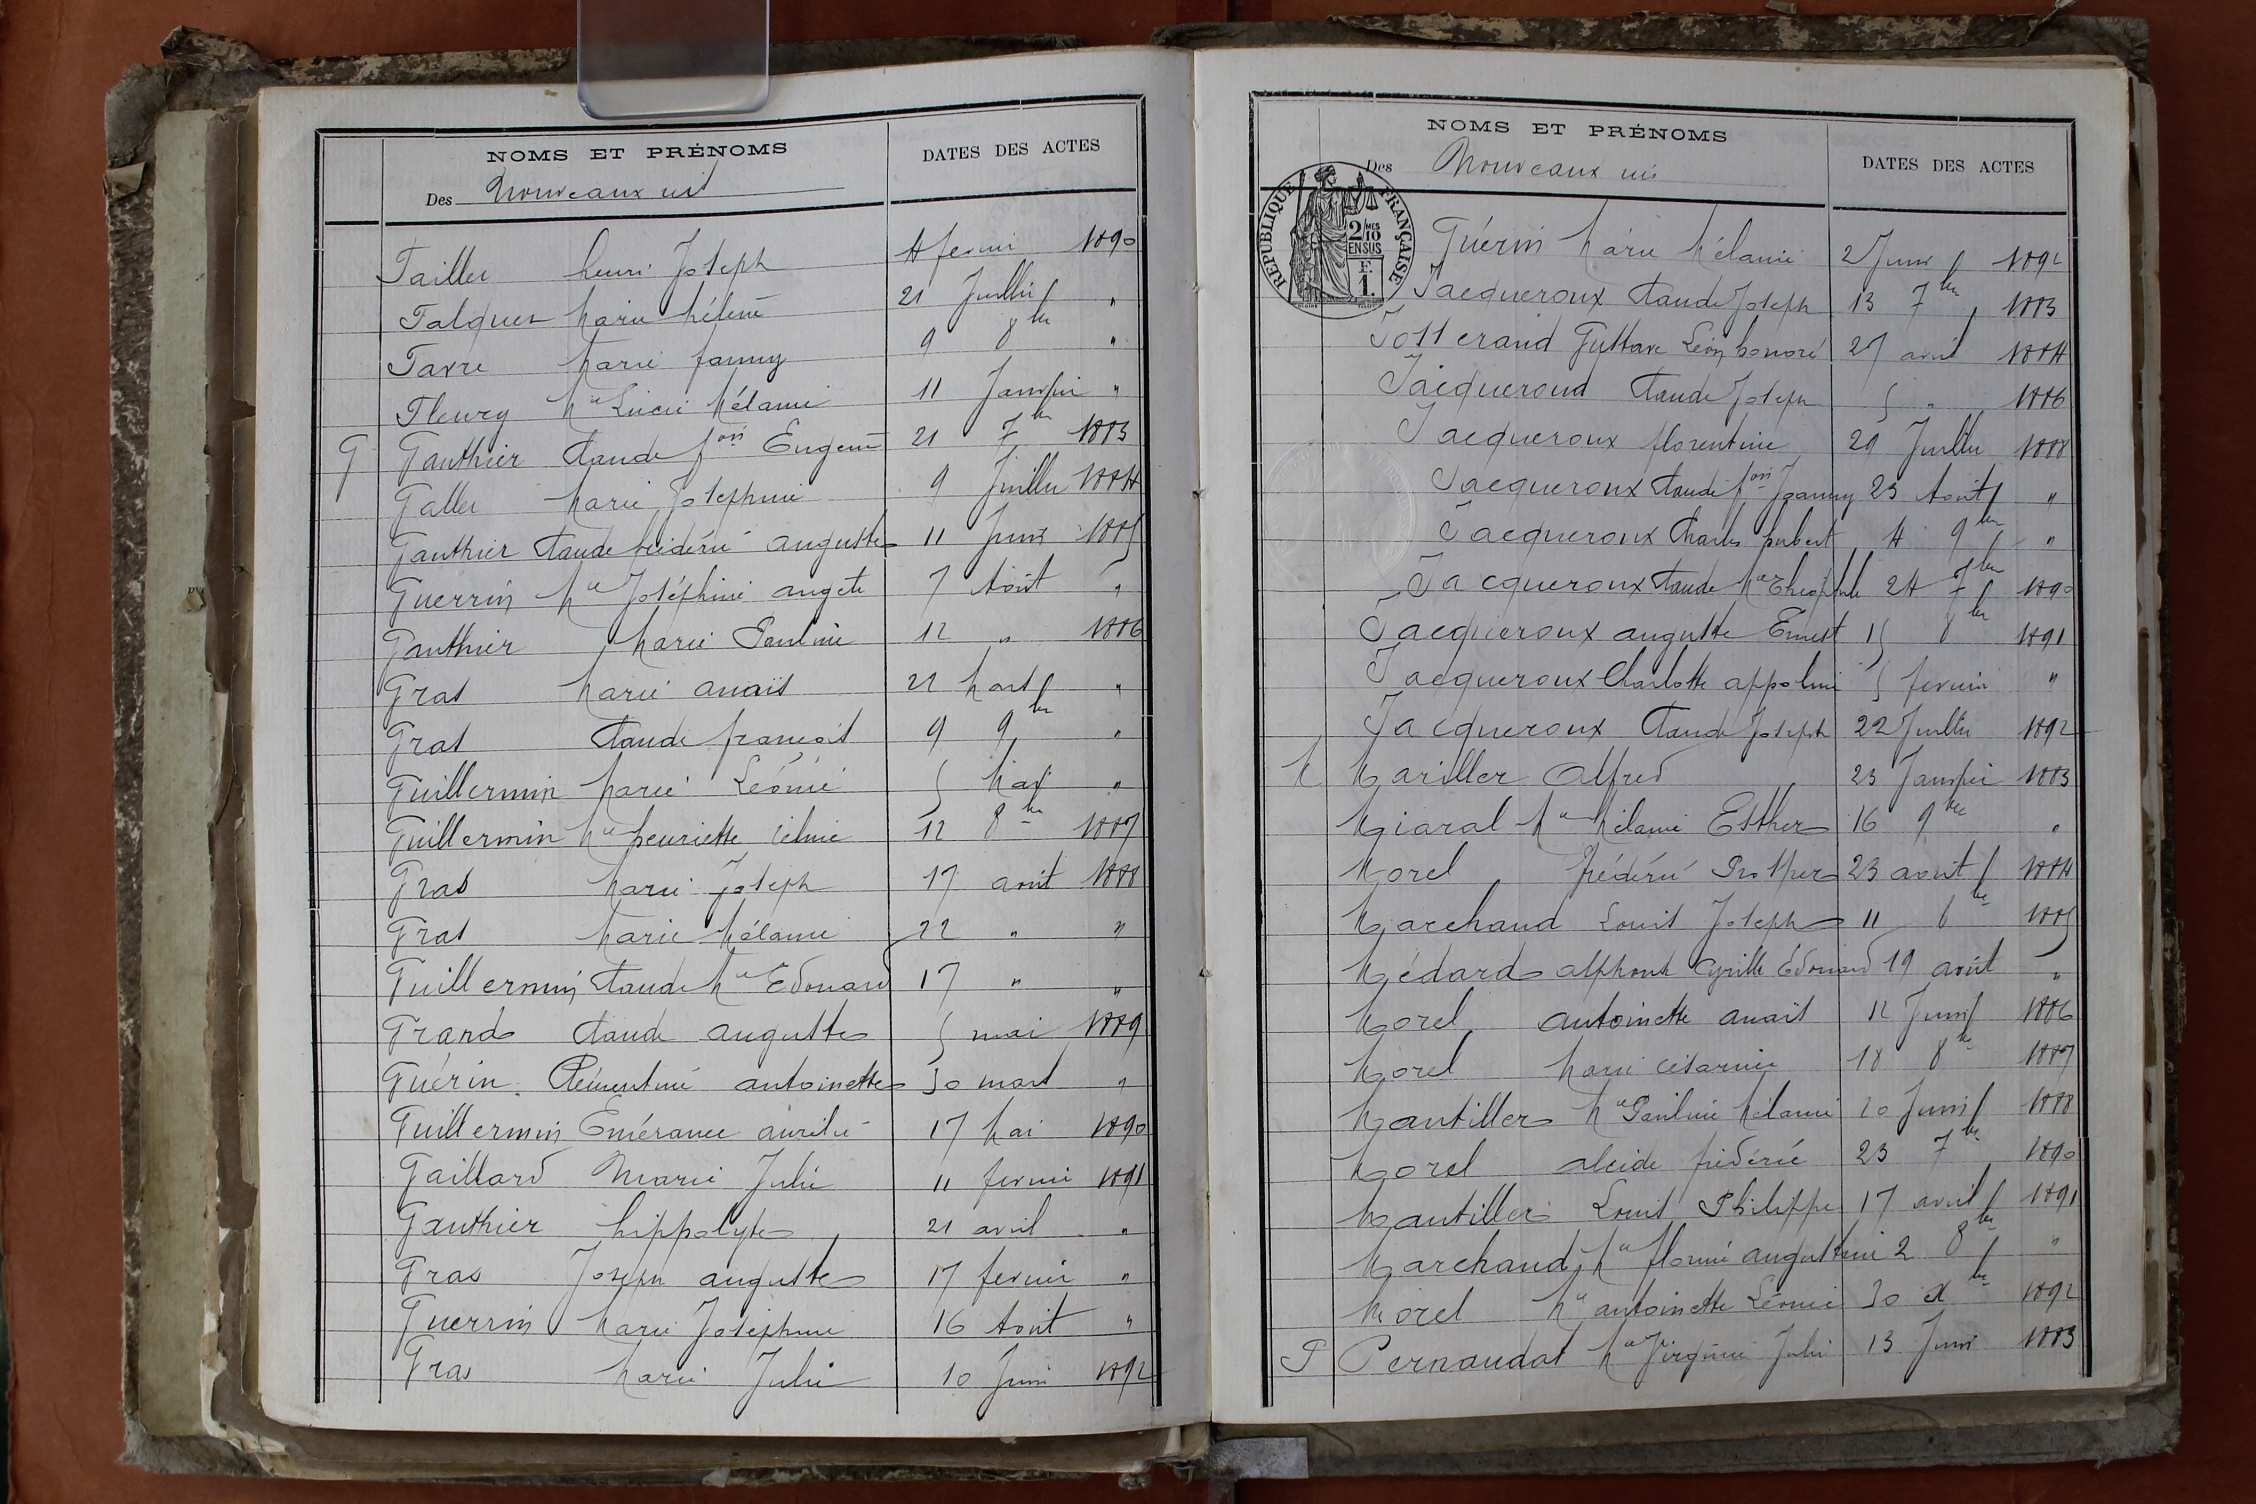 NOMS ET PRÉNOMS
DATES DES ACTES
Des Nouveaux nés
Failler henri Joseph 4 fevrier 1890
Falquer Marie hélène 21 Juillet "
Favre Marie fanny 9 8bre "
Fleury Mie Lucie Mélanie 11 Janvier "
G Gauthier Claude fois Eugene 21 7bre 1883
Galler Marie Josephine 9 Juillet 1884
Gauthier Claude frédéric auguste 11 Juin 1885
Guerrin Mie Joséphine 7 Août "
Gauthier Marie Pauline 12 " 1886
Gras Marie anaïs 22 Mars "
Gras Claude françois 9 9bre "
Guillermin Marie Léonie 5 Mai "
Guillermin Mie henriette 12 8bre 1887
Gras Marie Joseph 17 août 1888
Gras Marie Mélanie 22 " "
Guillermin Claude Mie Edouard 17 " "
Grand Claude auguste 5 mai 1889
Guérin Clémentine antoinette 30 mars "
Guillermin Emérance aurélie 17 Mai 1890
Gaillard Marie Julie 11 fevrier 1891
Gauthier hippolyte 21 avril "
Gras Joseph auguste 17 fevrier "
Guerrin Marie Josephine 16 Août "
Gras Marie Julie 10 Juin 1892
NOMS ET PRÉNOMS
DATES DES ACTES
Des Nouveaux nés
RÉPUBLIQUE FRANÇAISE
2/10 MES
EN SUS
F.
1.
Guérin Marie Mélanie 2 Juin 1892
Jacqueroux Claude Joseph 13 7bre 1883
Josserand Gustave Léon honoré 27 avril 1884
Jacqueroud Claude Joseph 5 " 1886
Jacqueroux florentine 29 Juillet 1888
Jacqueroux Claude fois Joanny 23 Août "
Jacqueroux Charles hubert 4 9bre "
Jacqueroux Claude Mie Théophile 24 7bre 1890
Jacqueroux auguste Ernest 15 8bre 1891
Jacqueroux Charlotte appoline 5 fevrier "
Jacqueroux Claude Joseph 22 Juillet 1892
M Mariller Alfred 23 Janvier 1883
Miaral Mie Mélanie Esther 16 9bre "
Morel frédéric Prosper 23 août 1884
Marchand Louis Joseph 11 bre 1885
Médard alphonse Cyrille Edouard 19 août "
Morel antoinette anaïs 12 Juin 1886
Morel Marie césarine 18 8bre 1887
Mantiller Mie Pauline Mélanie 20 Juin 1888
Morel alcide frédéric 23 7bre 1890
Mantiller Louis Philippe 17 avril 1891
Marchand Mie florine augustine 2 8bre "
Morel Mie antoinette Léonie 30 Xbre 1892
P Pernaudat Mie Virginie Julie 13 Juin 1883